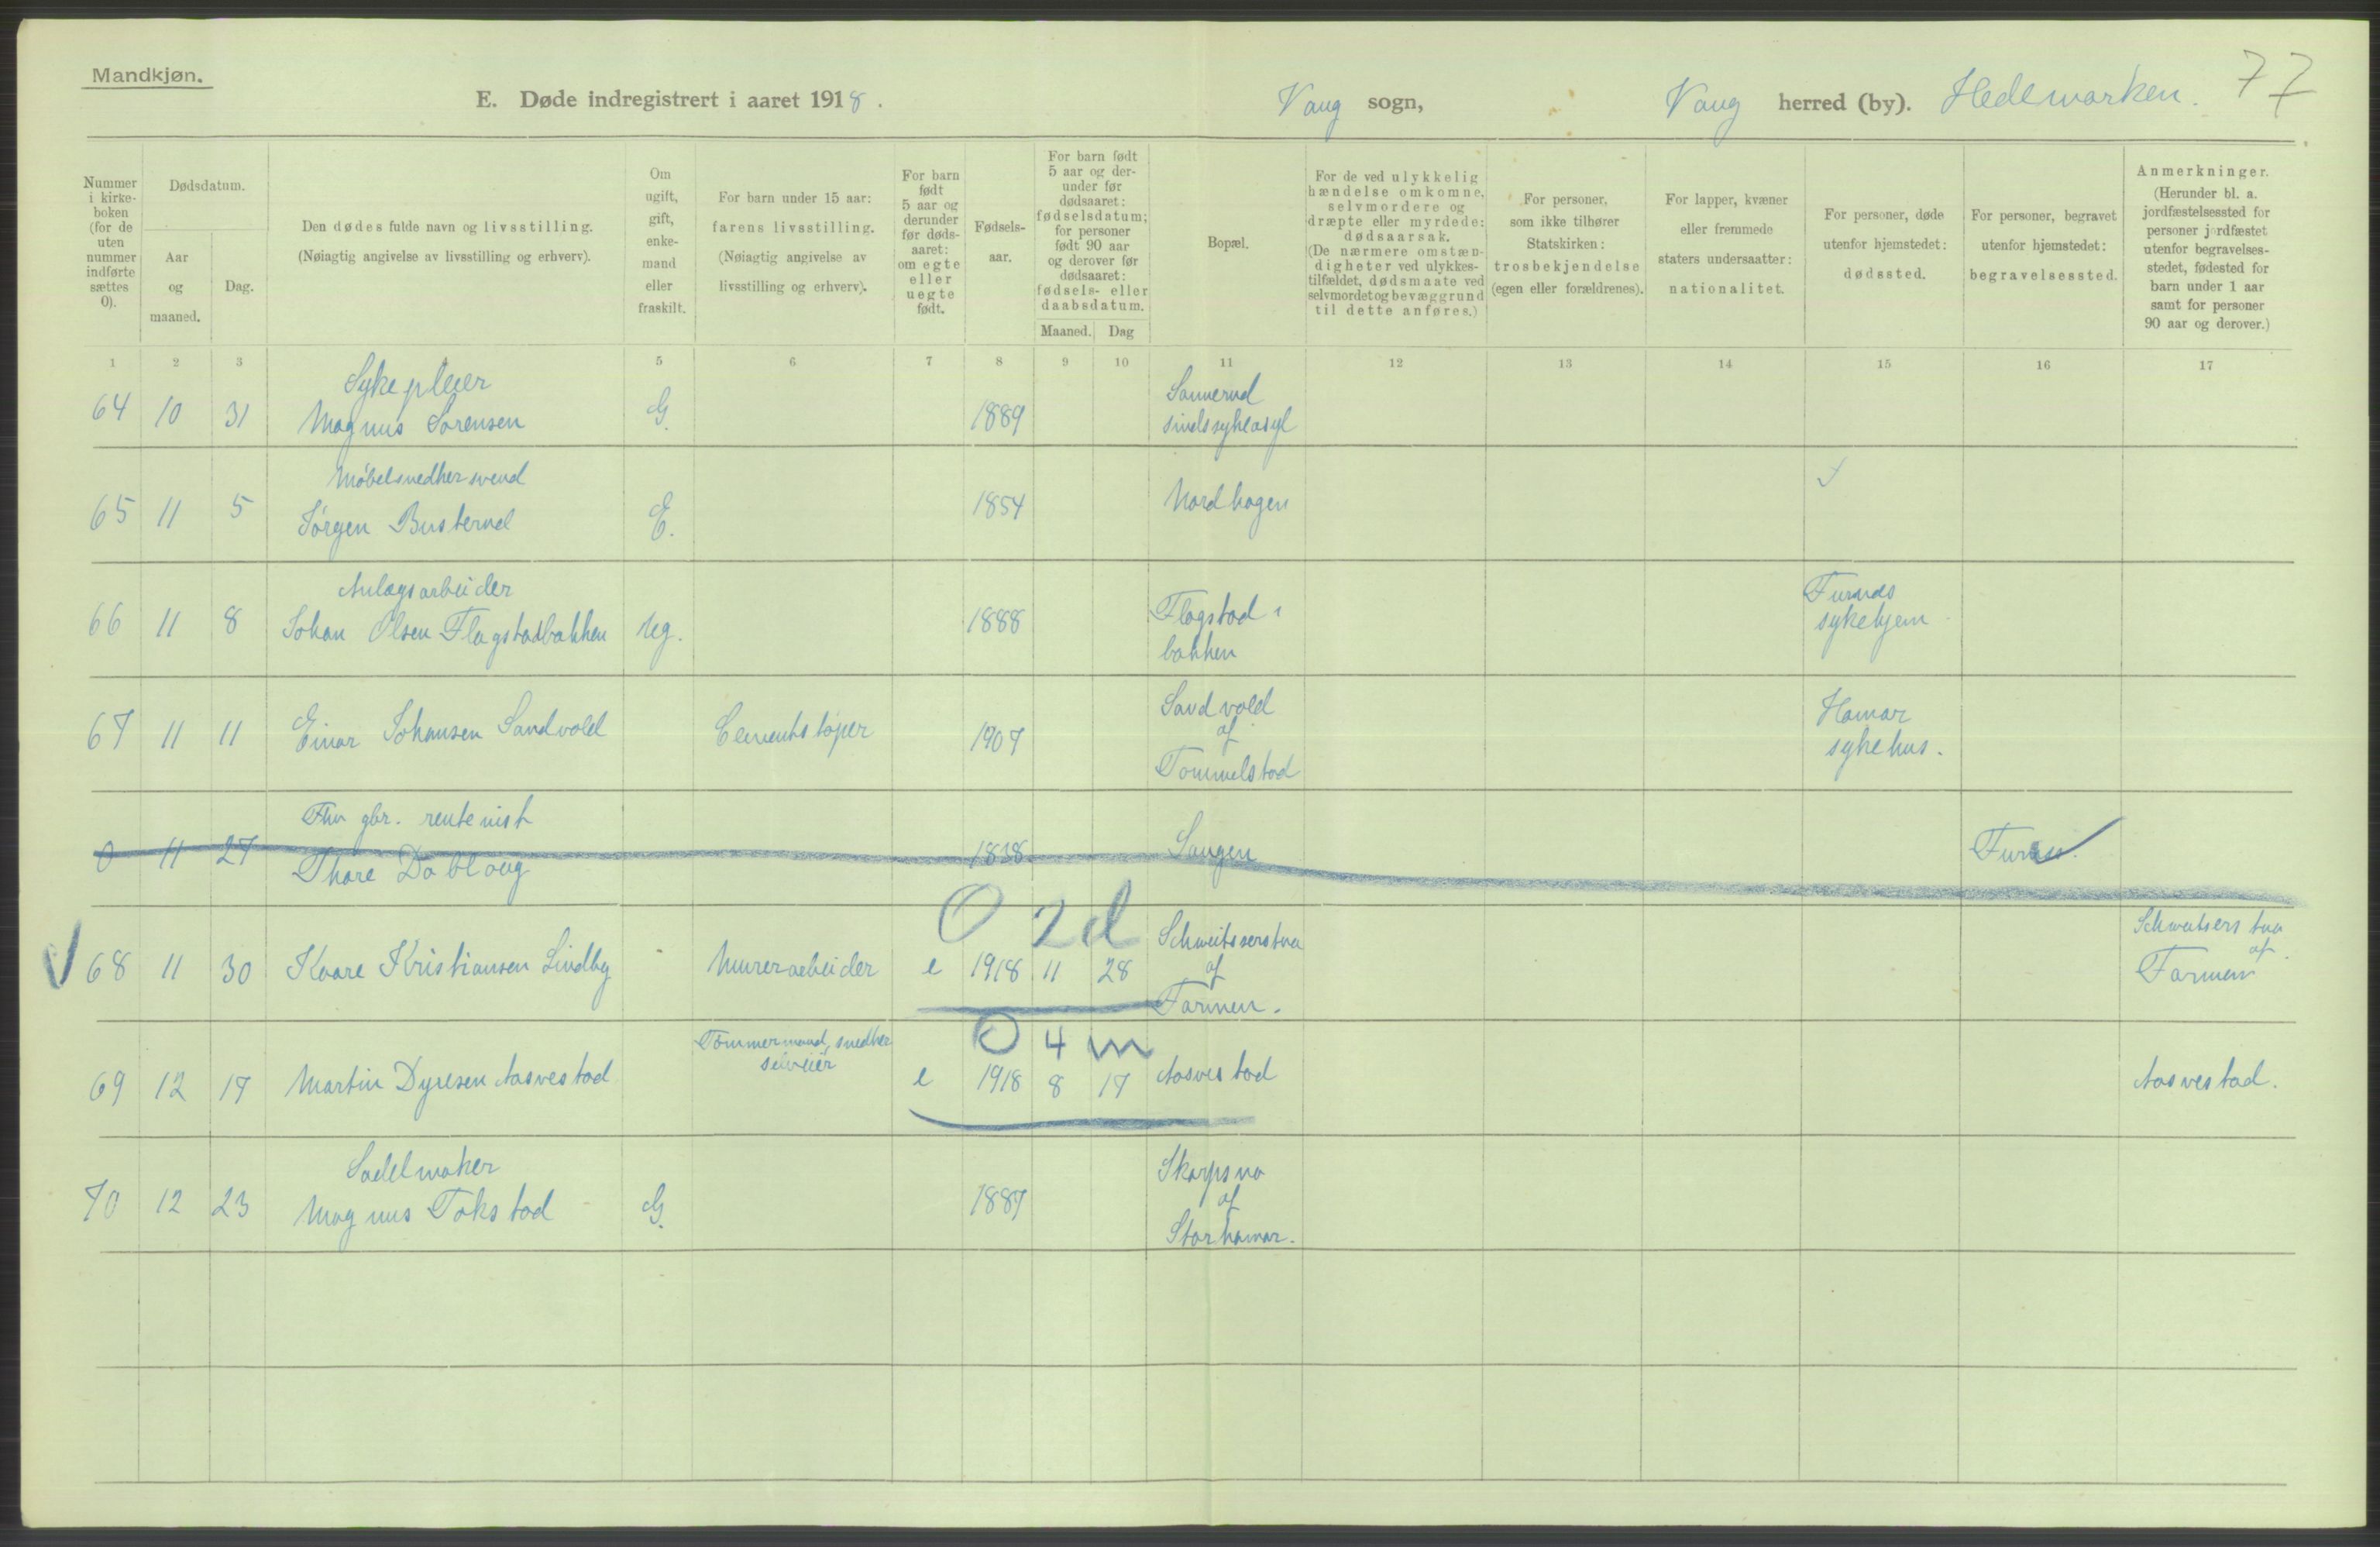 Mandkjøn.
E. Døde indregistrert i aaret 1918.
Vang sogn, Vang herred (by). Hedemarken. 77
Nummer i kirke-boken (for de uten nummer indførte sættes 0).
Dødsdatum.
Aar og maaned.
Dag.
Den dødes fulde navn og livsstilling.
(Nøiagtig angivelse av livsstilling og erhverv).
Om ugift, gift, enke-mand eller fraskilt.
For barn under 15 aar: farens livsstilling.
(Nøiagtig angivelse av livsstilling og erhverv).
For barn født 5 aar og derunder før døds-aaret: om egte eller uegte født.
Fødsels-aar.
For barn født 5 aar og der-under før dødsaaret: fødselsdatum; for personer født 90 aar og derover før dødsaaret: fødsels- eller daabsdatum.
Maaned. Dag
Bopæl.
For de ved ulykkelig hændelse omkomne, selvmordere og dræpte eller myrdede: dødsaarsak.
(De nærmere omstæn-digheter ved ulykkes-tilfældet, dødsmaate ved selvmordet og bevæggrund til dette anføres.)
For personer, som ikke tilhører Statskirken: trosbekjendelse (egen eller forældrenes).
For lapper, kvæner eller fremmede staters undersaatter: nationalitet.
For personer, døde utenfor hjemstedet: dødssted.
For personer, begravet utenfor hjemstedet: begravelsessted.
Anmerkninger.
(Herunder bl. a. jordfæstelsessted for personer jordfæstet utenfor begravelses-stedet, fødested for barn under 1 aar samt for personer 90 aar og derover.)
1 2 3 5 6 7 8 9 10 11 12 13 14 15 16 17
Sykepleier
64 10 31 Magnus Sørensen G. 1889 Sannerud sindssykeasyl
Møbelsnedkersvend
65 11 5 Jørgen Busterud E. 1854 Nordhagen
Anlægsarbeider
66 11 8 Johan Olsen Flagstadbakken Ug. 1888 Flagstad bakken Furnes sykehjem
67 11 11 Einar Johansen Sandvold Cementstøper 1907 Sandvold af Tommelstad Hamar sykehus.
Fhv gbr. rentenist
0 11 27 Thore Dobloug 1838 Sangen Furnes.
0 2d
68 11 30 Kaare Kristiansen Lindby Murerarbeider e 1918 11 28 Schweitserstua af Farmen. Schweitserstua af Farmen
0 4 m
Tømmermand, snedker selveier
69 12 17 Martin Dyresen Aasvestad e 1918 8 17 Aasvestad Aasvestad.
Sadelmaker
70 12 23 Magnus Tokstad G. 1887 Skarpsno af Storhamar.